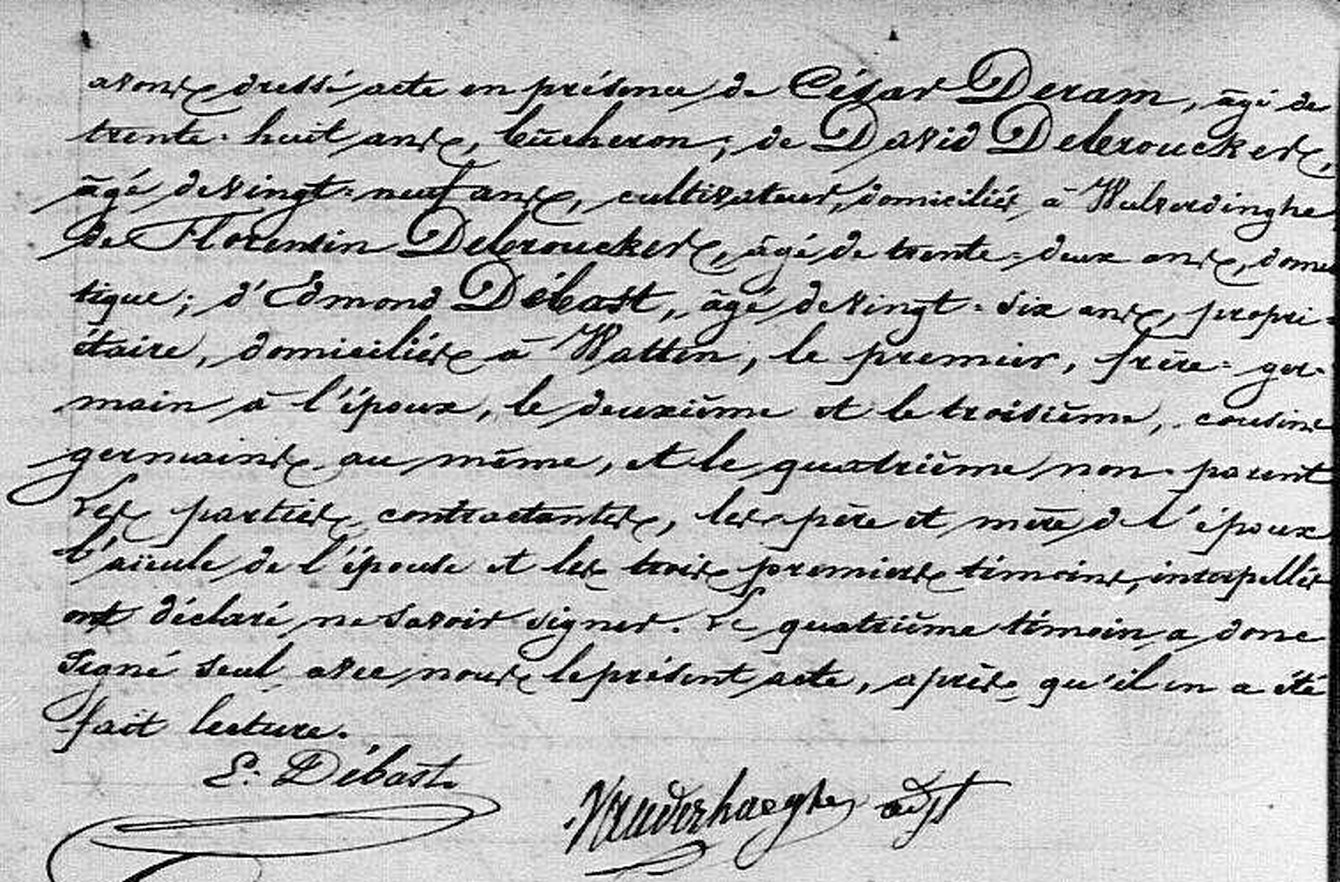 avons dressé acte en présence de César Deram, âgé de
trente-huit ans, bûcheron; de David Debrouckers,
âgé de vingt-neuf ans, cultivateur, domiciliés à Wulverdinghe
de Florentin Debrouckers, âgé de trente-deux ans, domes
tique; d'Edmond Débast, âgé de vingt-six ans, propri-
étaire, domiciliés à Watten, le premier, frère-ger-
main à l'époux, le deuxième et le troisième, cousins
germains au même, et le quatrième non-parent
Les parties contractantes, les père et mère de l'époux
l'aïeule de l'épouse et les trois premiers témoins, interpellés
ont déclaré ne savoir signer. Le quatrième témoin a donc
signé seul avec nous le présent acte, après qu'il en a été
fait lecture.
E. Débast
Vanderhaeghe adjt